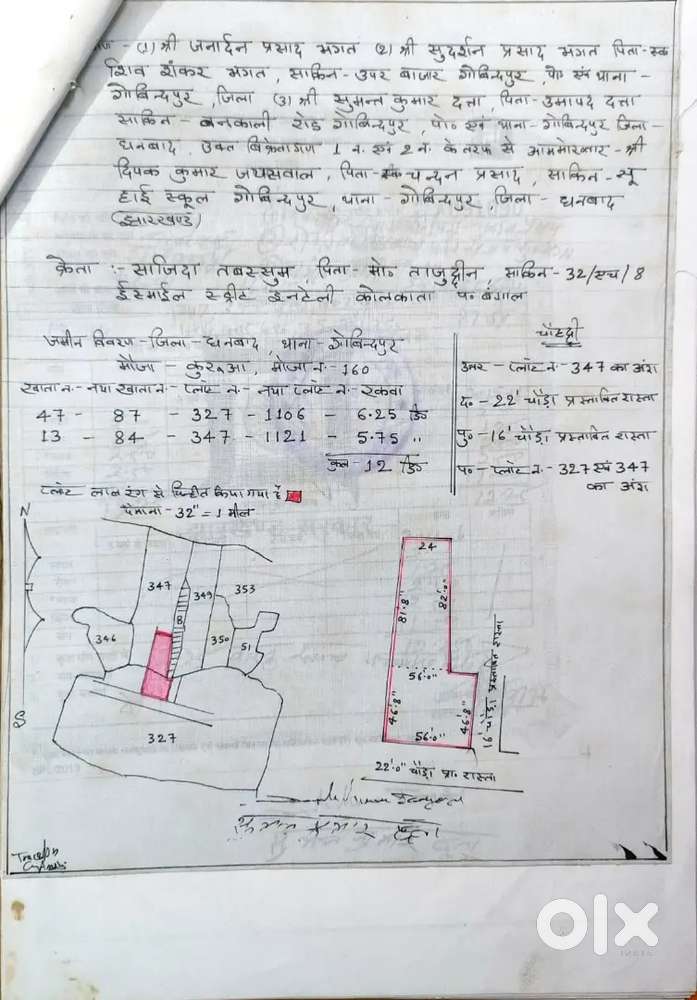 - (1) श्री जनार्दन प्रसाद भगत (2) श्री सुदर्शन प्रसाद भगत पिता-स्व
शिव शंकर भगत, साकिन-उपर बाजार गोबिन्दपुर, पो० एवं थाना-
गोबिन्दपुर, जिला (3) श्री सुमन्त कुमार दत्ता, पिता-उमापद दत्ता
साकिन- बनकाली रोड गोबिन्दपुर, पो० एवं थाना-गोबिन्दपुर जिला-
धनबाद, उक्त विक्रेतागण 1 न. एवं 2 न. के तरफ से आममोख्तार-श्री
दिपक कुमार जयसवाल, पिता-स्व चन्दन प्रसाद, साकिन-न्यू
हाई स्कूल गोबिन्दपुर, थाना- गोबिन्दपुर, जिला- धनबाद
(झारखण्ड)
क्रेता :- साजिदा तबस्सुम, पिता- मो० ताजुद्दीन, साकिन-32/एच/8
ईस्माईल स्ट्रीट इनटेली कोलकाता प० बंगाल
जमीन विवरण-जिला-धनबाद, थाना-गोबिन्दपुर
मौजा- कुरुआ, मौजा न.-160
खाता न.-नया खाता न.-प्लॉट न.-नया प्लॉट न.-रकवा
47 - 87 - 327 - 1106 - 6.25 डि०
13 - 84 - 347 - 1121 - 5.75 "
कुल-12 डि०
चौहद्दी
उत्तर - प्लॉट न- 347 का अंश
द० - 22' चौड़ा प्रस्तावित रास्ता
पु० - 16' चौड़ा प्रस्तावित रास्ता
प० - प्लॉट न.- 327 एवं 347
का अंश
प्लॉट लाल रंग से चिन्हीत किया गया है
पैमाना-32" = 1 मील
N
347
349
353
B
346
350
51
327
S
24
81'-8"
82'-0"
56'-0"
46'-8"
46'-8"
56'-0"
16' चौड़ा प्रस्तावित रास्ता
22'-0" चौड़ा प्रा० रास्ता
olx
INDIA